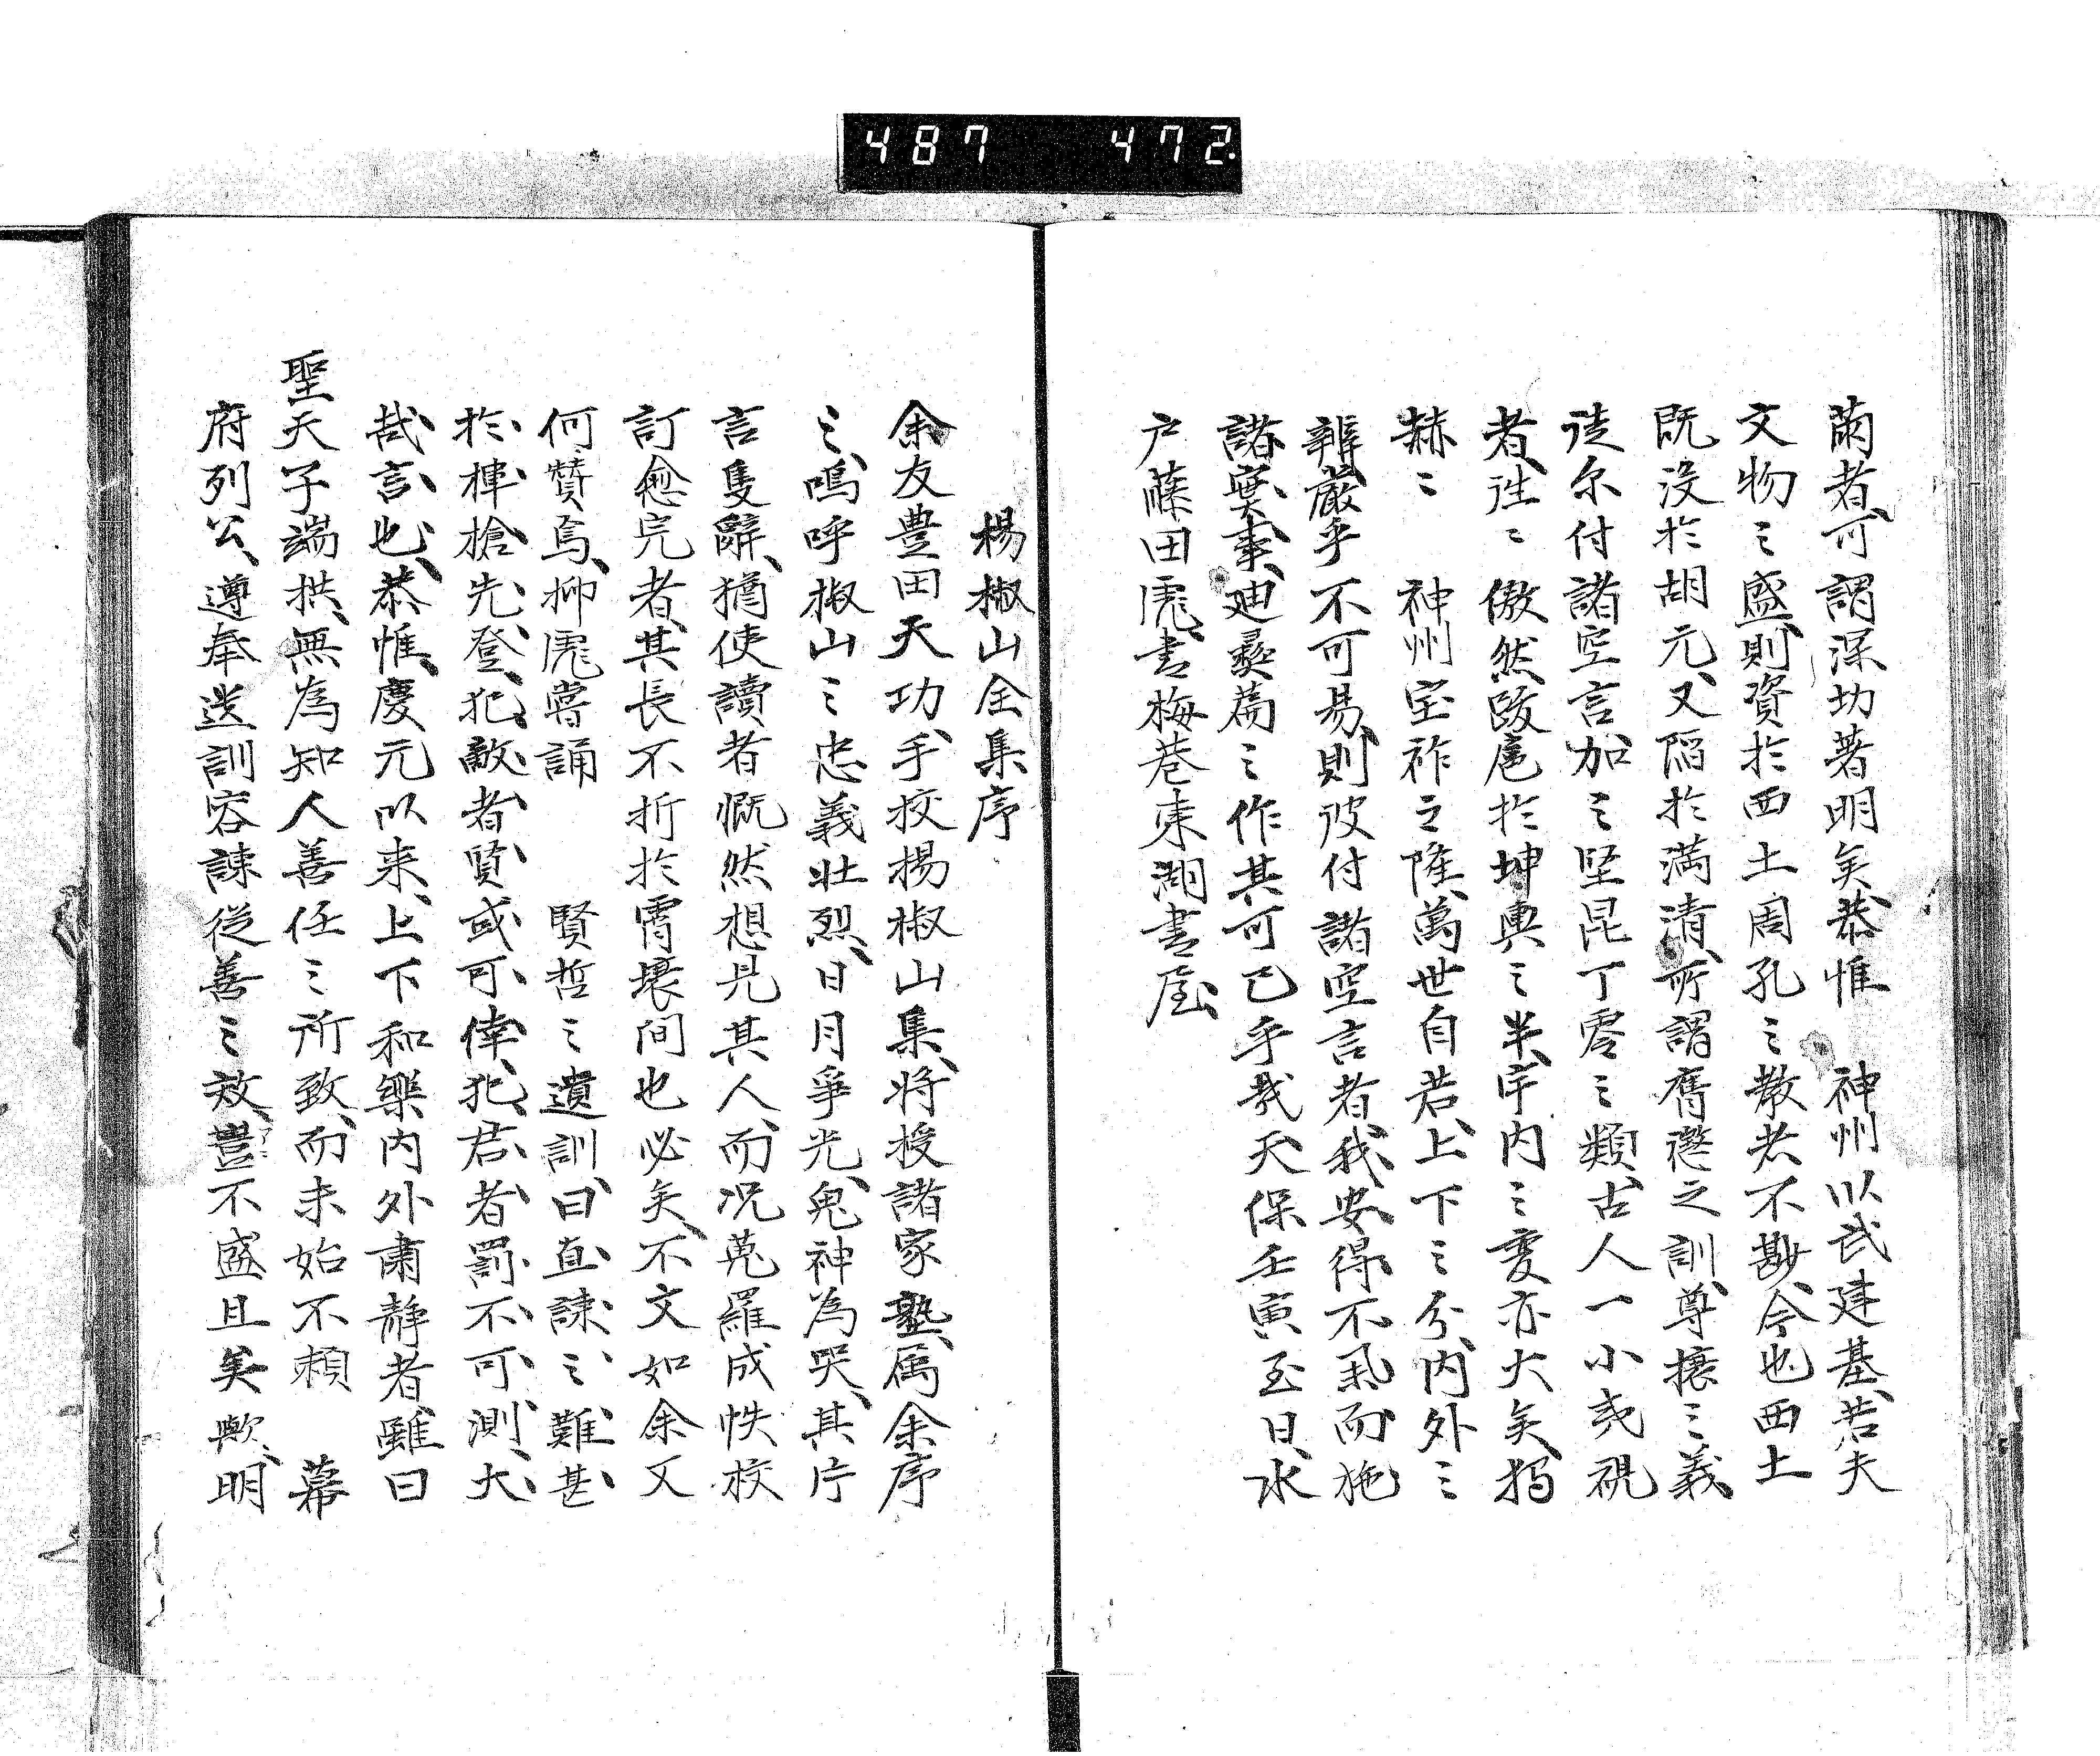 487 472.
蘭者、可謂深切著明矣、恭惟 神州以武建基、若夫
文物之盛、則資於西土周孔之教者不尠、今也西土
既没於胡元、又陷於満清、所謂膺懲之訓、尊攘之義、
徒尓付諸空言、加之堅昆丁零之類、古人一小夷視
者、往々傲然跋扈於坤輿之半、宇内之変亦大矣、独
赫々 神州宝祚之隆、萬世自若、上下之分、内外之
辨、厳乎不可易、則彼付諸空言者、我安得不眾而施
諸実事、迪彜篇之作、其可已乎哉、天保壬寅至日、水
戸藤田彪、書梅巷東湖書屋、
楊椒山全集序
余友豊田天功、手校楊椒山集、将授諸家塾、属余序
之、嗚呼椒山之忠義壮烈、日月争光、鬼神為哭、其片
言隻辭、猶使讀者慨然想見其人、而况蒐羅成帙、校
訂愈完者、其長不折於霄壌间也必矣、不文如余又
何賛焉、抑彪嘗誦 賢哲之遺訓、曰直諫之難、甚
於揮槍先登、犯敵者賢或可倖、犯君者罰不可測、大
哉言也、恭惟慶元以来、上下和樂内外肅静者、雖曰
聖天子端拱、無為知人善任之所致、而未始不頼 幕
府列公、遵奉造訓容諌従善之效、豈不盛且矣歟、明